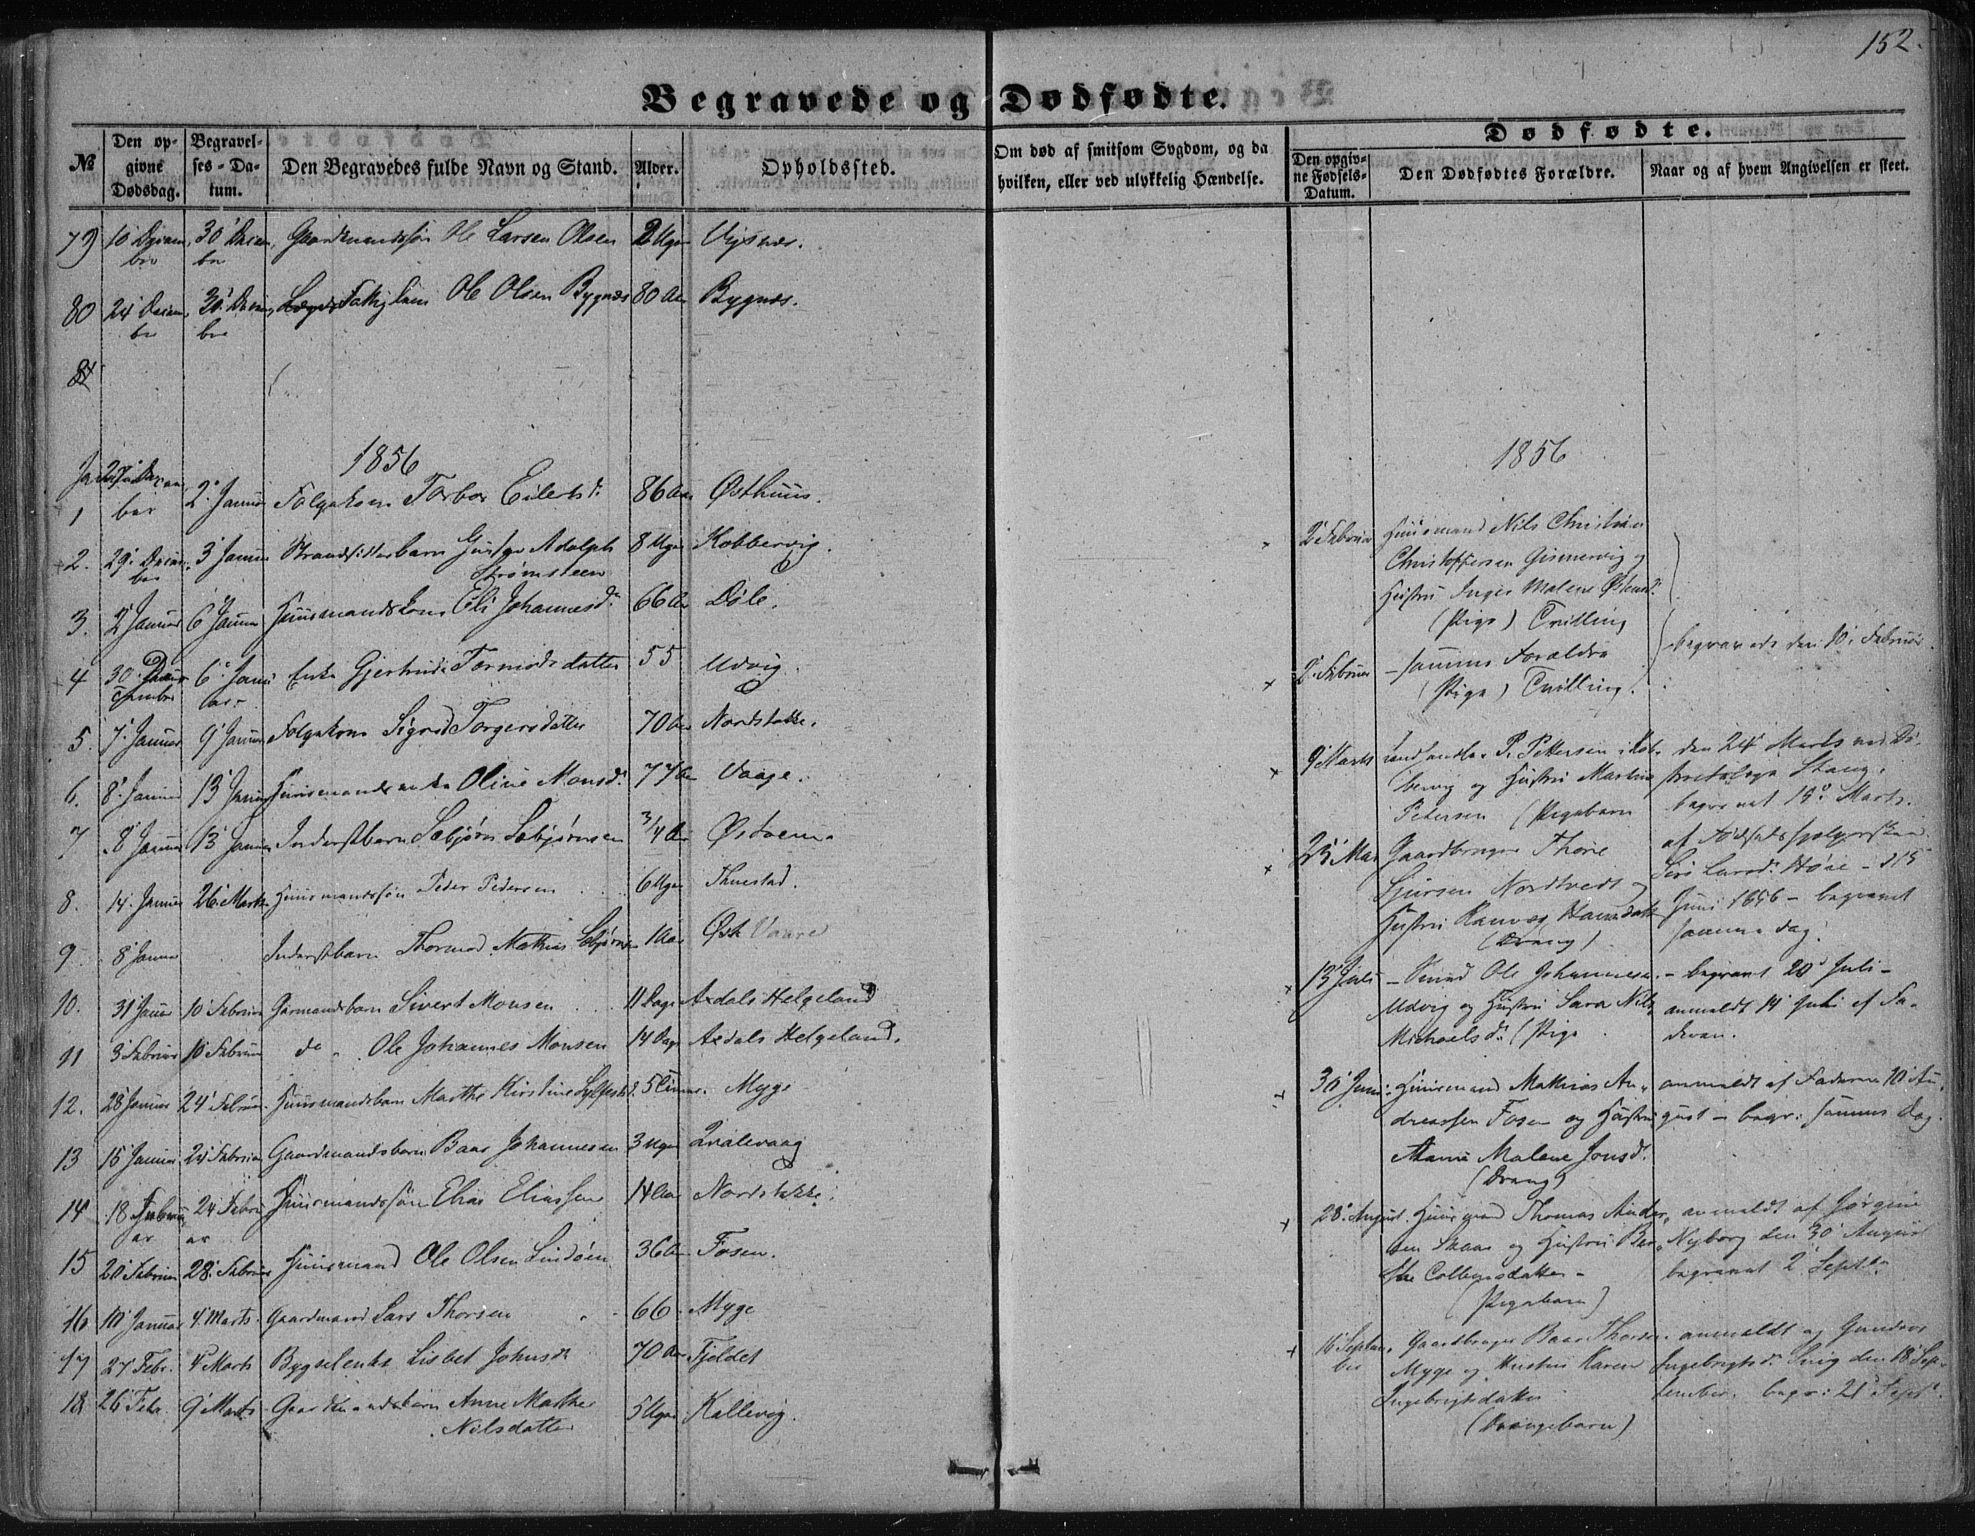 152.
Begravede og Dødfødte.
Dødfødte.
№ Den opgivne Dødsdag. Begravelses-Datum. Den Begravedes fulde Navn og Stand. Alder. Opholdssted. Om død af smitsom Sygdom, og da hvilken, eller ved ulykkelig Hændelse. Den opgivne Fødsels-Datum. Den Dødfødtes Forældre. Naar og af hvem Angivelsen er skeet.
79 10 Decem 30' Decem Gaardmandssøn Ole Larsen Olsen 2 Uger
ber ber
80 24 Decem 30' Decem Ole Olsen Bygnæs 80 Aar Bygnæs.
ber ber
81
1856
1 27 Decem 2' Januar Folgekone Torbor Eilertsd. 86 Aar Østhuus.
ber
2. 29' Decem 3' Januar Strandsidderbarn Gustav Adolph 8 Uger Kobbervig.
ber Strømsteen
3. 2' Januar 6' Januar Huusmandskone Eli Johannesd. 66 Aar Døle.
4 30 December 6' Januar Enke Gjertrude Tormodsdatter 55 Udvig.
5. 7' Januar 9' Januar Folgekone Sigrid Torgersdatter 70 Aar Nordstokke.
6. 8' Januar 13' Januar Huusmandsenke Oline Monsd. 77 Aar Vaage.
7 8' Januar 13' Januar Inderstbarn Sebjørn Sebjørnsen 3/4 Aar
8. 14. Januar 26' Marts Huusmandssøn Peder Pedersen 6 Uger Thuestad.
9. 8' Januar Inderstbarn Thormod Mathias Sebjørnsen 1 Aar
10. 31 Januar 10' Februar Gaarmandsbarn Sivert Monsen 11 Dage Axdals Helgeland
11 3' Februar 10' Februar do " Ole Johannes Monsen 14 Dage Axdals Helgeland.
12. 28' Januar 24' Februar Huusmandsbarn Marthe Kirstine 5 Timer. Myge
13 15 Januar 24' Februar Gaardmandsbarn Baar Johannesen 3 Uger Qvalevaag
14 18 Februar 24 Februar Huusmandssøn Elias Eliassen 14 Aar Nordstokke.
15 20' Februar 28' Februar Huusmand Ole Olsen Lindøen 36 Aar Fosen.
16 10' Januar 4' Marts. Gaardmand Lars Thorsen 66 Myge
17 27 Febr. 4' Marts Bygselenke Lisbet Johnsd. 70 Aar Fjeldet
18 26' Febr. 9' Marts Gaardmandsbarn Anne Marthe 5 Uger Kallevig.
Nilsdatter
1856
2' Februar Huusmand Nils Christian
Christoffersen Gismervig og
Hustru Inger Malene
(Pige) Tvilling
2' Februar - samme Forældre begravede den 10' Februar
(Pige) Tvilling.
9' Marts Landhandler P. Pettersen i Kob- den 24' Marts ved Di-
bervig og Hustru Martine striktslæge Stang.
Petersen (Pigebarn begravet 15' Marts.
25' Mai Gaardbruger Thore af Fødselshjelperske
Sjursen Nordtvedt og Larsd. Høie - d 15
Hustru Ranveg Hansdatter Juni 1856 - begravet
(Dreng) samme dag.
13' Juli - Ole Johannesen - begravet 20' Juli -
Udvig og Hustru Sara Nils anmeldt 14' Juli af Fa-
Michaelsd. (Pige deren.
30' Juni: Huusmand Mathias An- anmeldt af Faderen 10' Au-
dreassen Fosen og Hustru gust - begr: samme Dag.
Malene Jonsd.
(Dreng)
28' August. Huusmand Thomas Ander- anmeldt af Jørgine
sen Skaar og Hustru Ber- Nyborg den 30' August
the Colbensdatter - begravet 2' Septbr.
(Pigebarn)
16 Septem- Gaardbruger Baar Thorsen anmeldt af Gunvor
ber Myge og Hustru Karen Ingebrigtsd. den 18' Sep-
Ingebrigtsdatter tember. begr: 21' Sept.
(Drengebarn)